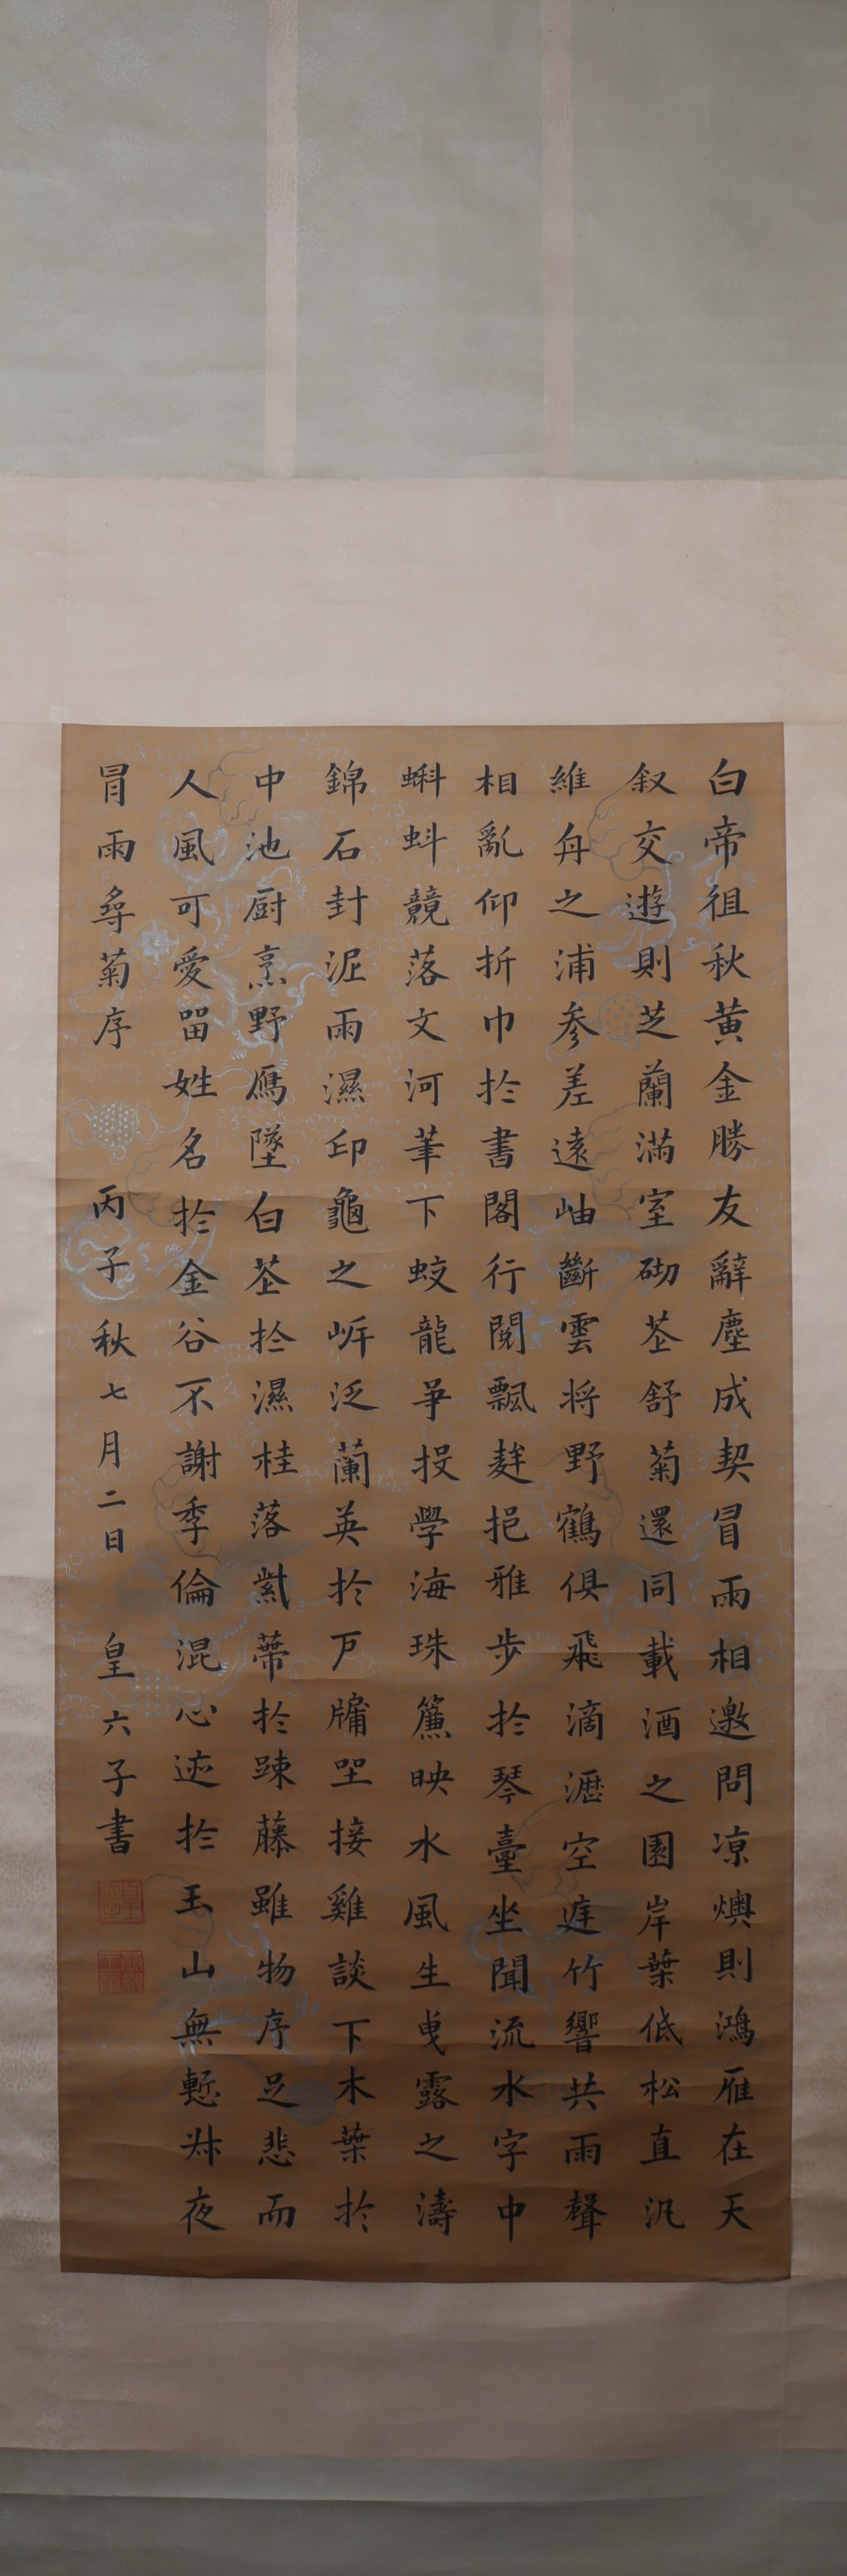 白帝徂秋黄金勝友辭塵成契冒雨相邀問涼燠則鴻雁在天
叙交遊則芝蘭滿室砌花舒菊還同載酒之園岸葉低松直汎
維舟之浦参差遠岫斷雲将野鶴俱飛滴瀝空庭竹響共雨聲
相亂仰折巾於書閣行閱飄䴬挹雅步於琴臺坐聞流水字中
蝌蚪競落文河筆下蛟龍爭投學海珠簾映水風生曳露之濤
錦石封泥雨濕印龜之岸泛蘭英於戶牖坐接雞談下木葉於
中池厨烹野鴈墜白花於濕桂落紫蒂於踈藤雖物序足悲而
人風可愛留姓名於金谷不謝季倫混心迹於玉山無慙叔夜
冒雨尋菊序
丙子秋七月二日
皇六子書